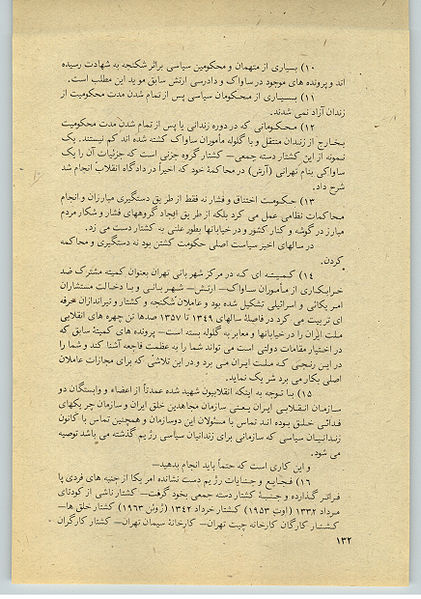 ۱۰) بسیاری از متهمان و محکومین سیاسی براثر شکنجه به شهادت رسیده
اند و پرونده های موجود در ساواک و دادرسی ارتش سابق موید این مطلب است.
۱۱) بسیاری از محکومان سیاسی پس از تمام شدن مدت محکومیت از
زندان آزاد نمی شدند.
۱۲) محکومانی که در دوره زندانی یا پس از تمام شدن مدت محکومیت
بخارج از زندان منتقل و با گلوله مأموران ساواک کشته شده اند کم نیستند. یک
نمونه از این کشتار دسته جمعی— کشتار گروه جزنی است که جزئیات آن را یک
ساواکی بنام تهرانی (آرش) در محاکمهٔ خود که اخیراً در دادگاه انقلاب انجام شد
شرح داد.
۱۳) حکومت اختناق و فشار نه فقط از طریق دستگیری مبارزان و انجام
محاکمات نظامی عمل می کرد بلکه از طریق ایجاد گروههای فشار و شکار مردم
مبارز در گوشه و کنار کشور و در خیابانها بطور علنی به کشتار دست می زد.
در سالهای اخیر سیاست اصلی حکومت کشتن بود نه دستگیری و محاکمه
کردن.
۱۴) کمیته ای که در مرکز شهربانی تهران بعنوان کمیته مشترک ضد
خرابکاری از مأموران ساواک— ارتش— شهربانی و با دخالت مستشاران
امریکائی و اسرائیلی تشکیل شده بود و عاملان شکنجه و کشتار و تیراندازان حرفه
ای تربیت می کرد در فاصلهٔ سالهای ۱۳۴۹ تا ۱۳۵۷ صدها تن چهره های انقلابی
ملت ایران را در خیابانها و معابر به گلوله بسته است— پرونده های کمیتهٔ سابق که
در اختیار مقامات دولتی است می تواند شما را به عظمت فاجعه آشنا کند و شما را
در این رنجی که ملت ایران می برد و در این تلاشی که برای مجازات عاملان
اصلی بکار می برد شریک نماید.
۱۵) با توجه به اینکه انقلابیون شهید شده عمدتاً از اعضاء و وابستگان دو
سازمان انقلابی ایران یعنی سازمان مجاهدین خلق ایران و سازمان چریکهای
فدائی خلق بوده اند تماس با مسئولان این دوسازمان و همچنین تماس با کانون
زندانیان سیاسی که سازمانی برای زندانیان سیاسی رژیم گذشته می باشد توصیه
می شود.
و این کاری است که حتماً باید انجام بدهید—
۱۶) فجایع و جنایات رژیم دست نشانده امریکا از جنبه های فردی پا
فراتر گذارده و جنبهٔ کشتار دسته جمعی بخود گرفت— کشتار ناشی از کودتای
مرداد ۱۳۳۲ (اوت ۱۹۵۳) کشتار خرداد ۱۳۴۲ (ژوئن ۱۹۶۳) کشتار خلق ها—
کشتار کارگان کارخانه چیت تهران— کارخانهٔ سیمان تهران— کشتار کارگران
۱۳۲